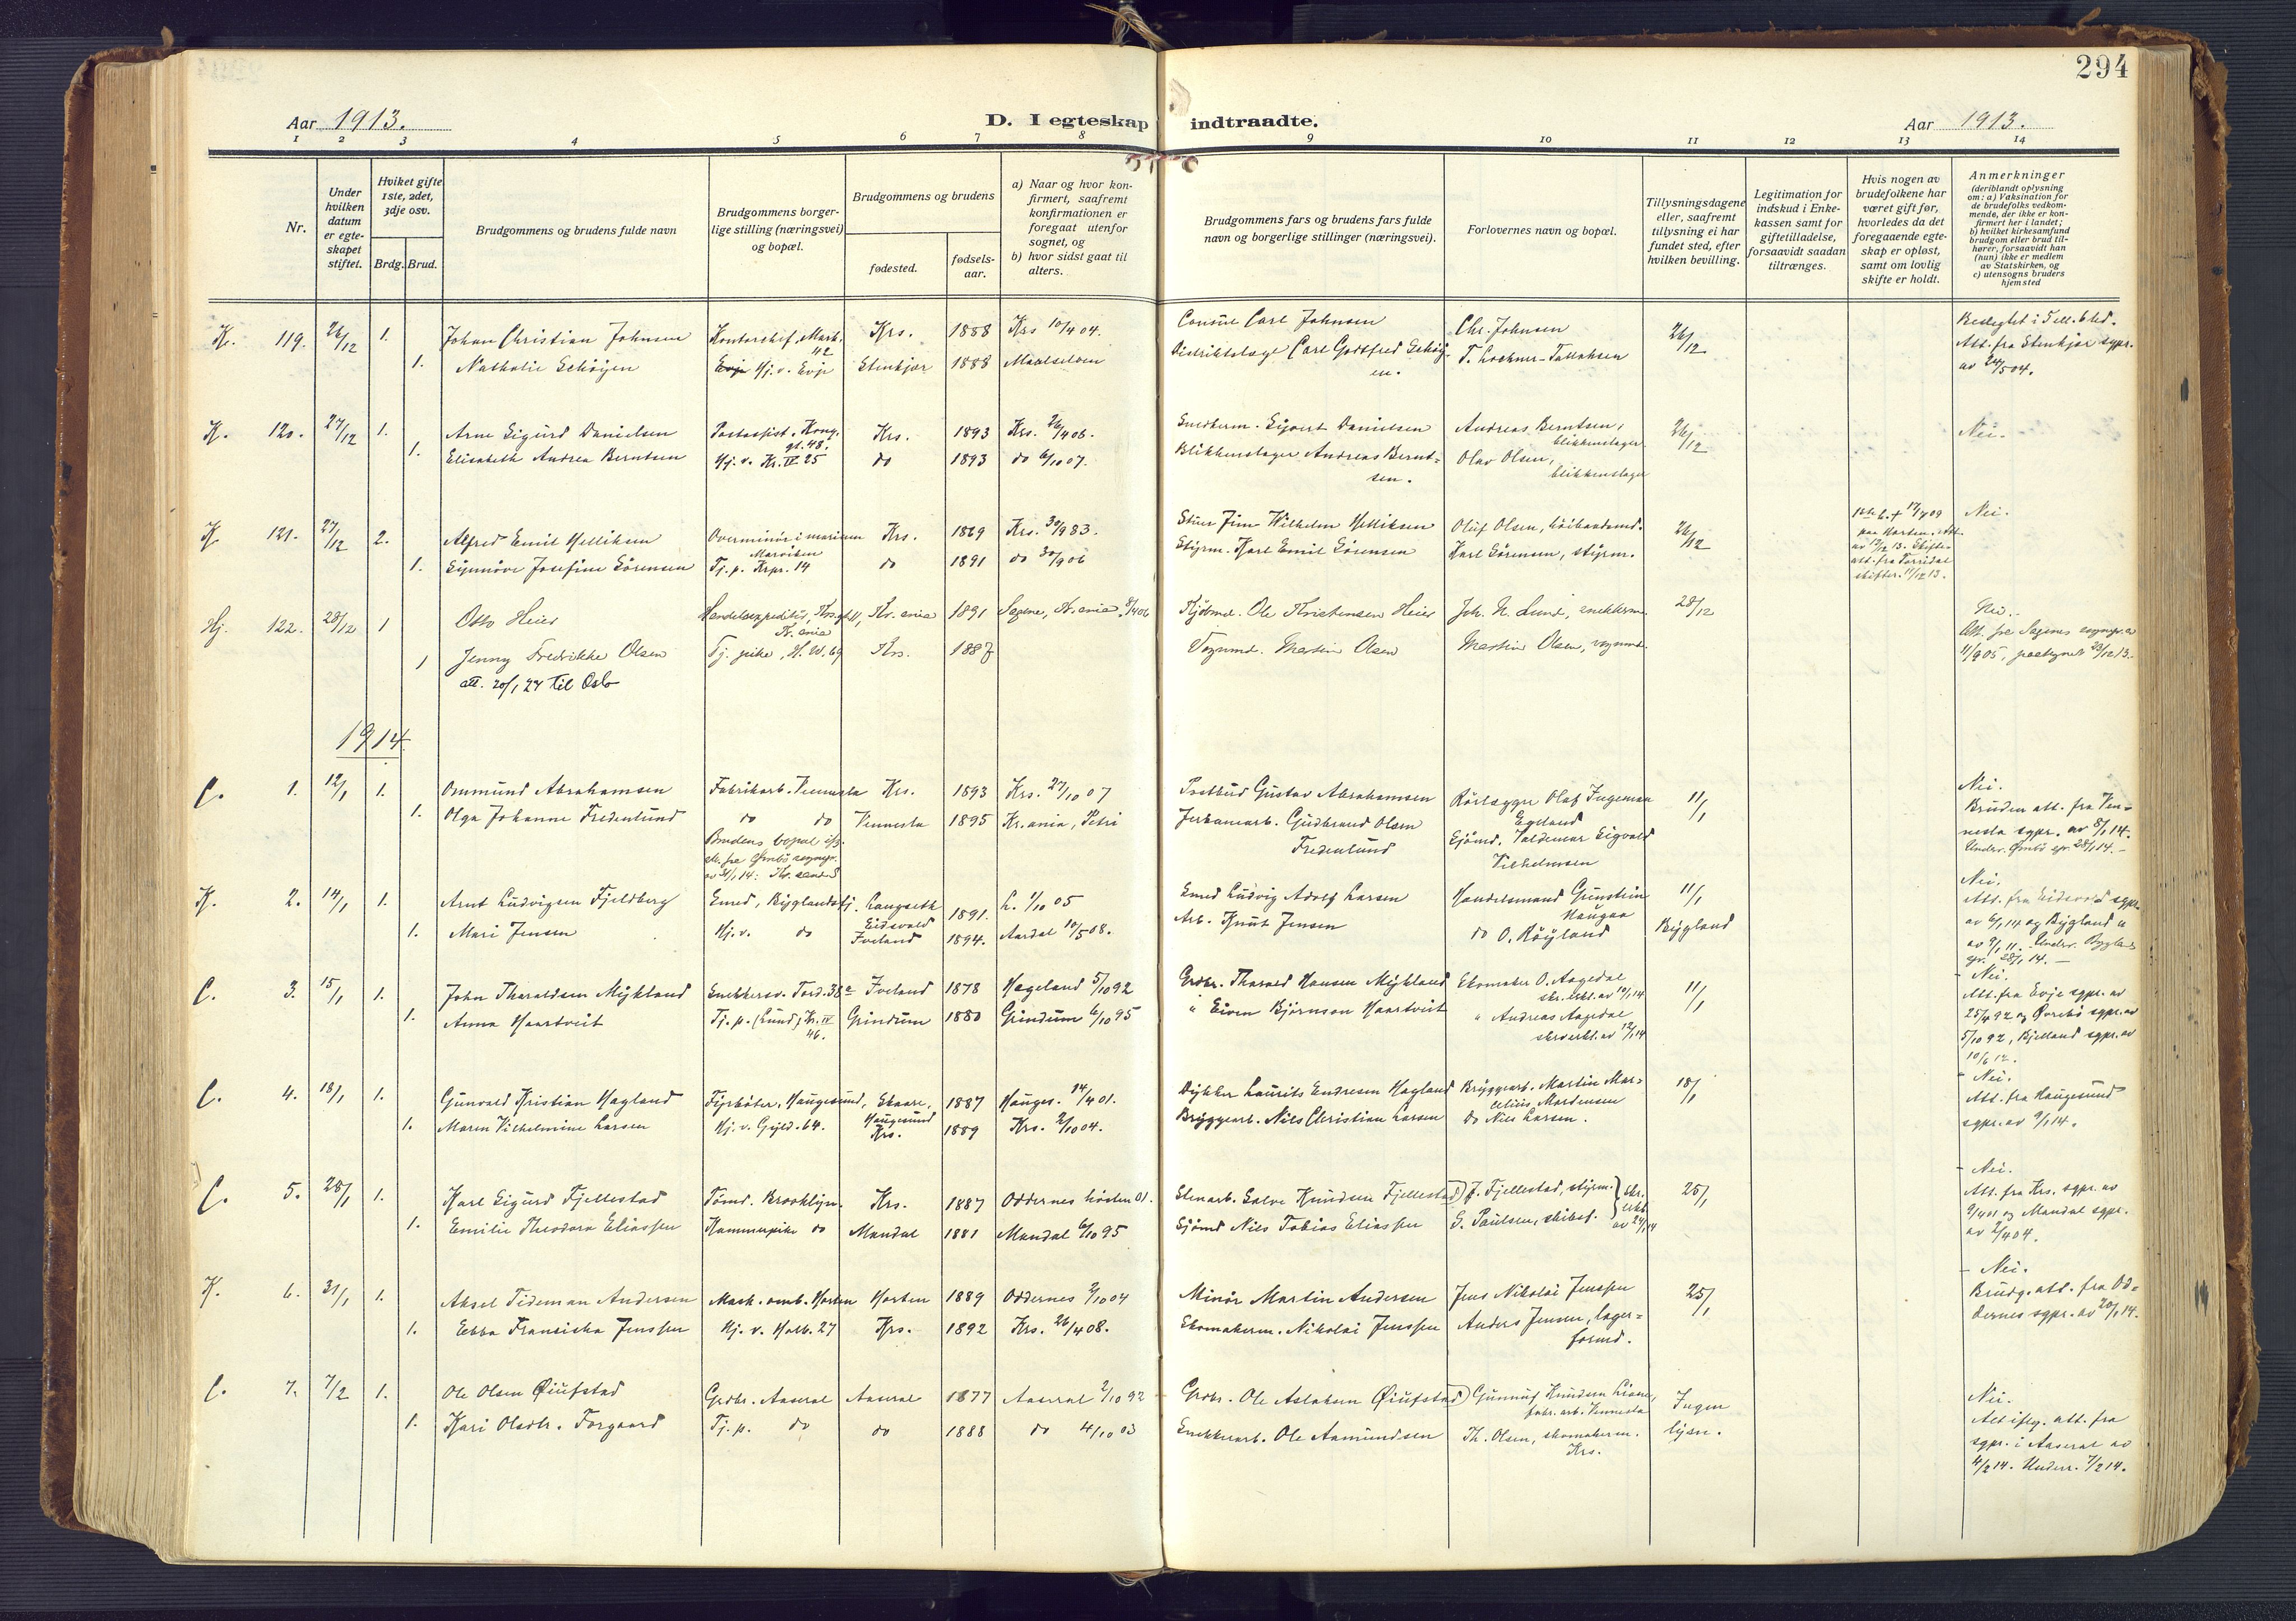 294
Aar 1913.
D. I egteskap indtraadte.
Aar 1913.
1 2 3 4 5 6 7 8 9 10 11 12 13 14
Nr.
Under hvilken datum er egteskapet stiftet.
Hviket gifte 1ste, 2det, 3dje osv.
Brdg. Brud.
Brudgommens og brudens fulde navn
Brudgommens borgerlige stilling (næringsvei) og bopæl.
Brudgommens og brudens
fødested.
fødselsaar.
a) Naar og hvor konfirmert, saafremt konfirmationen er foregaat utenfor sognet, og
b) hvor sidst gaat til alters.
Brudgommens fars og brudens fars fulde navn og borgerlige stillinger (næringsvei).
Forlovernes navn og bopæl.
Tillysningsdagene eller, saafremt tillysning ei har fundet sted, efter hvilken bevilling.
Legitimation for indskud i Enkekassen samt for giftetilladelse, forsaavidt saadan tiltrænges.
Hvis nogen av brudefolkene har været gift før, hvorledes da det foregaaende egteskap er opløst, samt om lovlig skifte er holdt.
Anmerkninger
(deriblandt oplysning om: a) Vaksination for de brudefolks vedkommende, der ikke er konfirmert her i landet; b) hvilket kirkesamfund brudgom eller brud tilhører, forsaavidt han (hun) ikke er medlem av Statskirken, og c) utensogns bruders hjemsted
K. 119. 26/12 1. Johan Christian Johnsen Kontorchef, Mark. 42 Krs. 1888 Krs 10/4 04. Consul Carl Johnsen Chr. Johnsen 26/12
1. Nathalie Schöyen Hj. v. Evje Stenkjær 1888 Maalselven Distriktslæge Carl Gotfred Schöyen. T. Lochner-Tallaksen
Att. fra Stenkjær sgpr. av 24/5 04.
K. 120. 27/12 1. Arne Sigurd Danielsen Postassist. Kong. gt. 48. Krs. 1893 Krs. 26/4 06. Snedkerm. Sivert Danielsen Andreas Berntsen, blikkenslager 26/12 Nei.
1. Elisabeth Andrea Berntsen Hj. v. Kr. IV 25 do 1893 do 6/10 07. Blikkenslager Andreas Berntsen. Olav Olsen, blikkenslager
K. 121. 27/12 2. Alfred Emil Helliksen Overminör i marinen Krs. 1869 Krs. 30/9 83. Wilhelm Helliksen Oluf Olsen 26/12 Nei.
Marviken
1. Synnöve Josefine Sörensen Tj. p. Krpr. 14 do 1891 do 30/9 06 Styrm. Karl Emil Sörensen Karl Sörensen, styrm.
paa Horten. Att. av 12/12 13. Skifteatt. fra Torridal skifter. 11/12 13.
Hj. 122. 28/12 1 Otto Heier Handelsexpeditör, Kr.ania Kr.ania 1891 Sagene, Kr.ania 8/4 06 Kjöbmd. Ole Kristensen Heier Joh. N. Lund, snekkerm. 28/12 Nei.
1 Jenny Fredrikke Olsen Tj. pike, H. W. 69 Krs. 1887 Vognmd. Martin Olsen Martin Olsen, vognmd.
att. 20/1 27 til Oslo
Att. fra Sagenes sognepr. av 11/9 05, paategnet 23/12 13.
1914
C. 1. 12/1 1. Ommund Abrahamsen Fabrikarb. Vennesla Krs. 1893 Krs. 27/10 07 Postbud Gustav Abrahamsen Rörlægger Olaf Ingeman Egeland 11/1 Nei.
1. Olga Johanne Fredenlund do do Vennesla 1895 Kr.ania, Petri Jerbanearb. Gudbrand Olsen Fredenlund Sjömd. Valdemar Sigvald Vilhelmsen
Brudens bopæl
Bruden att. fra Vennesla sgpr. av 8/1 14.
K. 2. 14/1 1. Arnt Ludvigsen Fjeldberg Smed, Byglandsfj. Langseth Eidsvold 1891. L. 1/10 05 Smed Ludvig Adolf Larsen Handelsmand Gunstein Haugaa 11/1 Nei.
1. Mari Jensen Hj. v. do Iveland 1894. Aardal 10/5 08. Arb. Knut Jensen do O. Röyland Bygland
Att. fra Eidsvold sgpr. av 6/1 14 og Bygland
C. 3. 15/1 1. John Tharaldsen Mykland Snekkersv. Tord. 38 a Iveland 1878 Hægeland 5/10 92 Grdbr. Tharald Hansen Mykland Skomaker O. Aagedal 11/1 Nei.
1. Anna Haartveit Tj. p. (Lund) Kr. IV 46. Grindum 1880 Grindum 6/10 95 " Eiven Björnson Haartveit " Andreas Aagedal
Att. fra Evje sgpr. av 25/4 92 og Övrebö sgpr. av 5/10 92, Bjelland sgpr. av 10/6 12.
C. 4. 18/1 1. Gunvald Kristian Hagland Fyrböter, Haugesund, Skaare, Haugesund 1887 Hauges. 14/4 01. Dykker Laurits Endresen Hagland Bryggearb. Martin Marcelius Mortensen 18/1 Nei.
1. Maren Vilhelmine Larsen Hj. v. Gyld. 64. Krs. 1889 Krs. 2/10 04. Bryggearb. Nils Christian Larsen do Nils Larsen.
Att. fra Haugesund sgpr. av 9/1 14.
C. 5. 28/1 1. Karl Sigurd Fjellestad Tömd. Brooklyn. Krs. 1887 Oddernes hösten 01. Stenarb. Salve Knudsen Fjellestad J. Fjellestad, styrm. 25/1 Nei.
1. Emilie Theodora Eliassen Kammerpike do Mandal 1881 Mandal 6/10 95 Sjömd Nils Tobias Eliassen G. Paulsen, skibsf. skr. erkl. av 24/1 14
Att. fra Krs. sgpr. av 9/4 01 og Mandal sgpr. av 2/4 04.
K. 6. 31/1 1. Aksel Tideman Andersen Mask. omb. Horten Horten 1889 Oddernes 2/10 04 Minör Martin Andersen Jens Nikolai Jenssen 25/1 Nei.
1. Ebba Franciska Jenssen Hj. v. Holb. 27 Krs. 1892 Krs. 26/4 08. Skomakerm. Nikolai Jenssen Anders Jensen, lagerformd.
Brudg. att. fra Oddernes sgpr. av 20/1 14.
C. 7. 7/2 1. Ole Olsen Öiufstad Grdbr. Aaseral Aaseral 1877 Aaseral 2/10 92 Grdbr. Ole Aslaksen Öiufstad Gunnuf Knudsen fabr. arb. Vennesla Ingen Nei.
1. Kari Olsdtr. Torgaard Tj. p. do do 1888 do 4/10 03 Snekkerarb. Ole Aamundsen Th. Olsen, skomakerm. Krs. lysn.
Att. fra sgpr. i Aaseral av 4/2 14. Underr. 7/2 14.